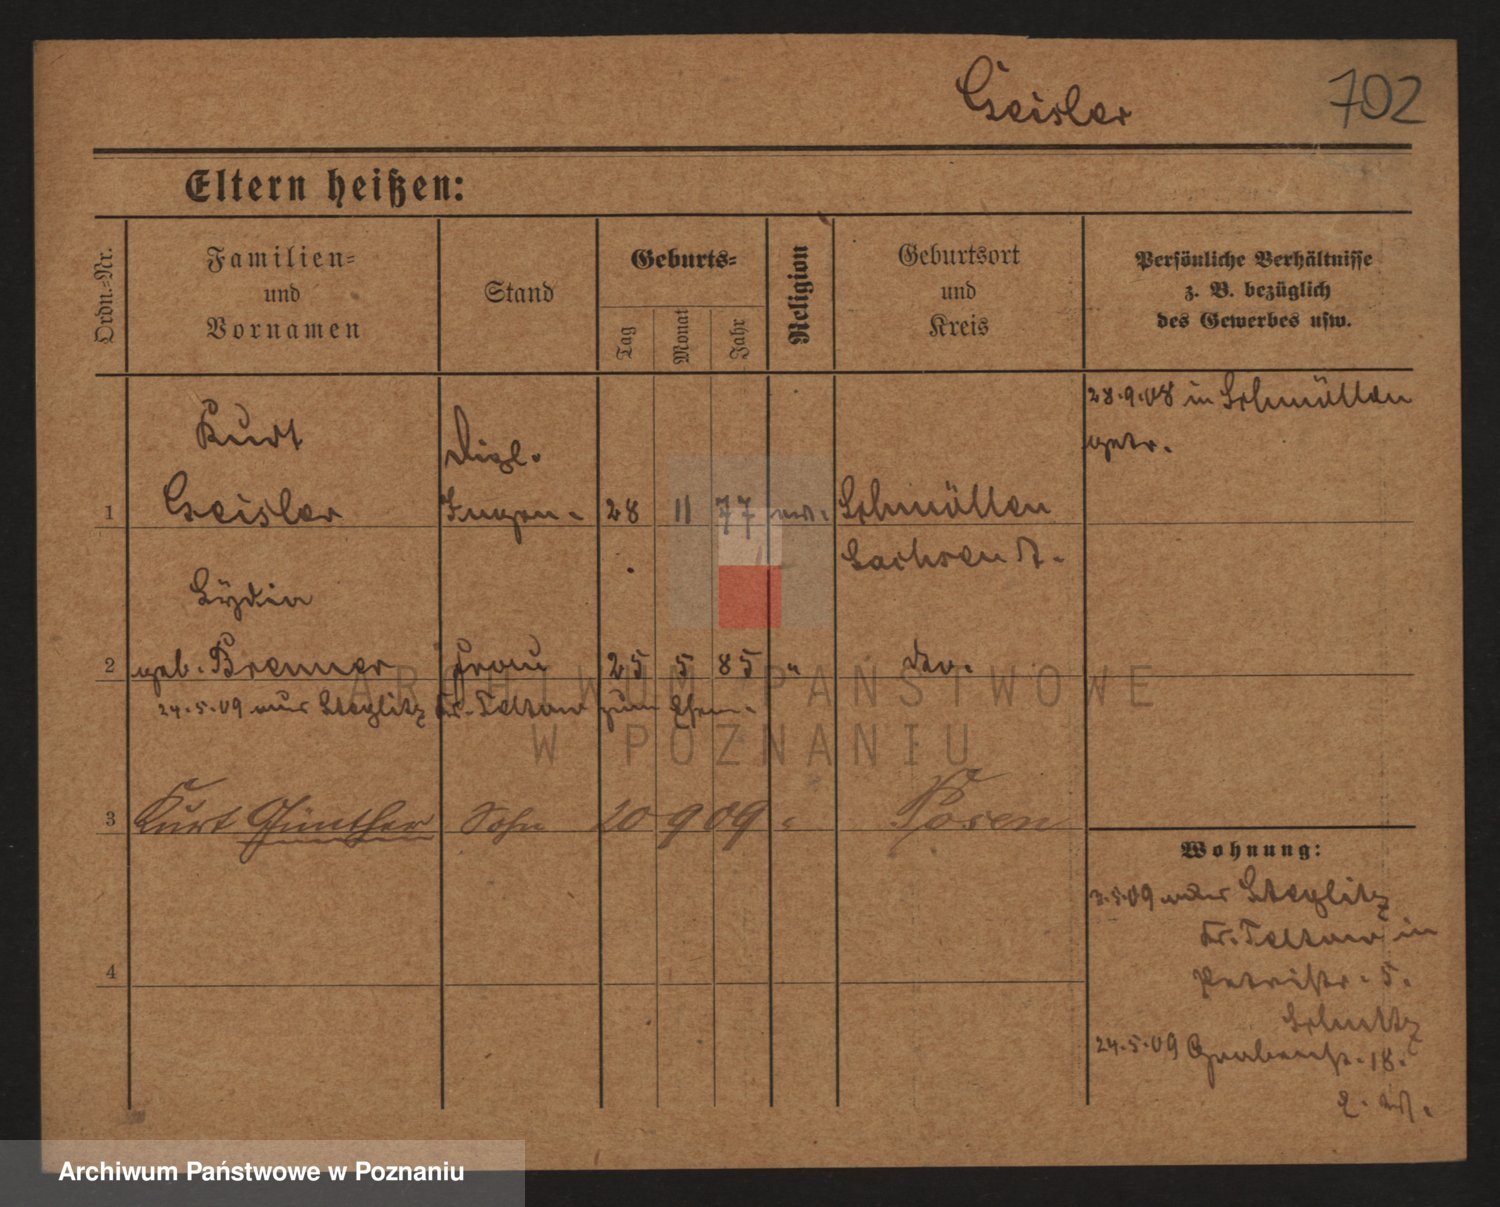 Geisler
702
Eltern heißen:
Ordn.-Nr.
Familien-
und
Vornamen
Stand
Geburts-
Tag
Monat
Jahr
Religion
Geburtsort
und
Kreis
Persönliche Verhältnisse
z. B. bezüglich
des Gewerbes usw.
28.9.08 in Schmölln
getr.
Kurt
Dipl.
1 Geisler Ingen. 28 11 77 ev. Schmölln
Sachsen A.
Lydia
2 geb. Brenner Frau 25 5 85 " do.
24.5.09 aus Steglitz Kr. Teltow zum Ehem.
3 Kurt Günther Sohn 20 9 09 Posen
4
Wohnung:
3.5.09 aus Steglitz
Kr. Teltow in
Petristr. 5.
Schultz
24.5.09 Grabenstr. 18.
E. W.
ARCHIWUM PAŃSTWOWE
W POZNANIU
Archiwum Państwowe w Poznaniu